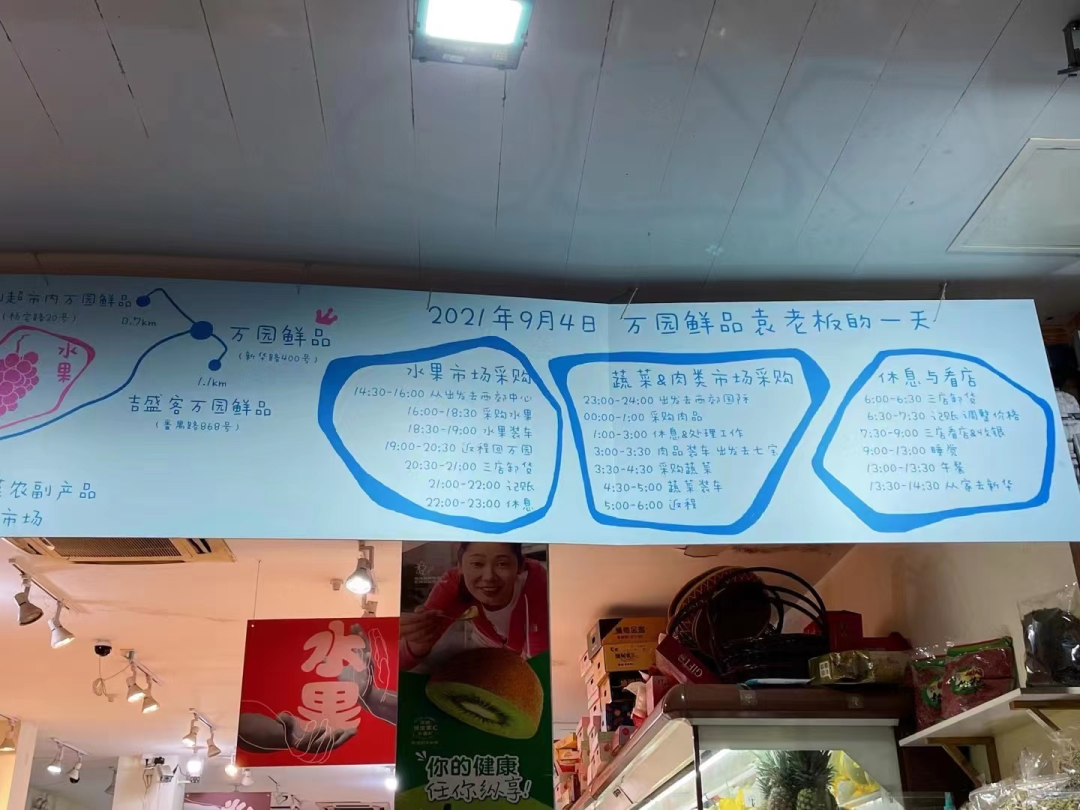 超市内万园鲜品
(杨宅路20号)
0.7km
万园鲜品
(新华路400号)
1.1km
吉盛客万园鲜品
(番禺路868号)
水果
农副产品
市场
2021年9月4日 万园鲜品袁老板的一天
水果市场采购
14:30-16:00 从出发去西郊中心
16:00-18:30 采购水果
18:30-19:00 水果装车
19:00-20:30 返程回万园
20:30-21:00 三店卸货
21:00-22:00 记账
22:00-23:00 休息
蔬菜&肉类市场采购
23:00-24:00 出发去西郊国际
00:00-1:00 采购肉品
1:00-3:00 休息&处理工作
3:00-3:30 肉品装车 出发去七宝
3:30-4:30 采购蔬菜
4:30-5:00 蔬菜装车
5:00-6:00 返程
休息与看店
6:00-6:30 三店卸货
6:30-7:30 记账 调整价格
7:30-9:00 三店看店&收银
9:00-13:00 睡觉
13:00-13:30 午餐
13:30-14:30 从家去新华
水果
你的健康
任你纵享!